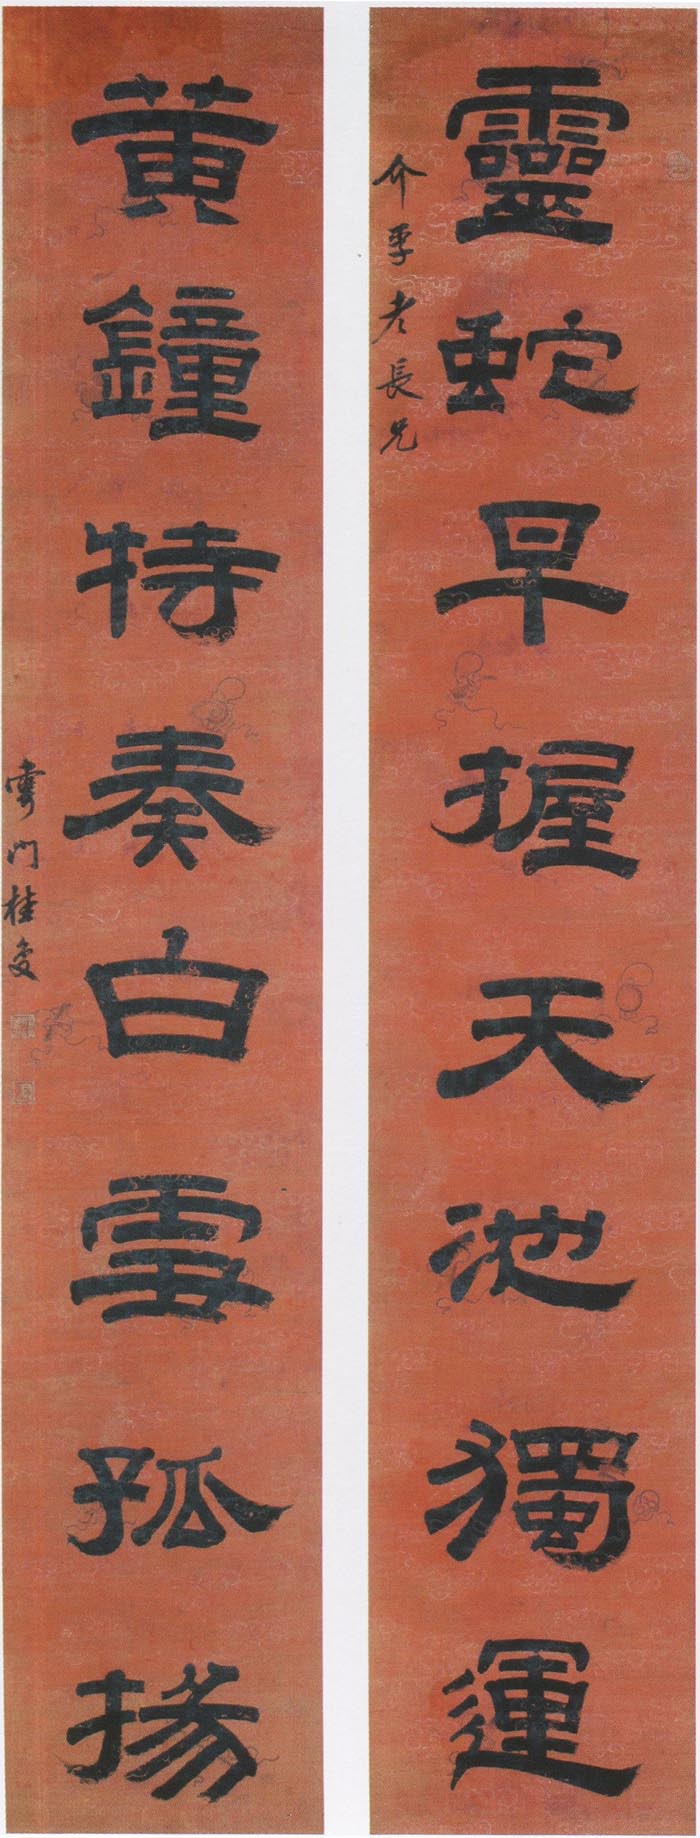 靈蛇早握天池獨運
介平老長兄
黃鐘特奏白雪孤揚
雩門桂馥